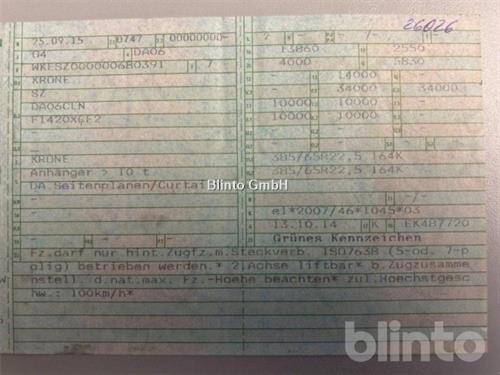 26026
25.09.15 0747 00000000- 2 - /-
04 DA06 13860 2550
WKESZ0000006B0391 7 4000 3830
KRONE - 14000 -
SZ - 34000 34000
DA06CLN 10000 10000 -
F1420X4E2 10000 10000 -
- - - -
KRONE 385/65R22,5 164K
Anhänger > 10 t 385/65R22,5 164K
DA.Seitenplanen/Curtai
Blinto GmbH
- - -/-
- e1*2007/46*1045*03
- 13.10.14 K EK487720
- - Grünes Kennzeichen
Fz.darf nur hint.Zugfz.m.Steckverb. ISO7638 (5-od. 7-p
olig) betrieben werden.* 2.Achse liftbar* b.Zugzusamme
nstell. d.nat.max. Fz.-Hoehe beachten* zul.Hoechstgesc
hw.: 100km/h*
blinto